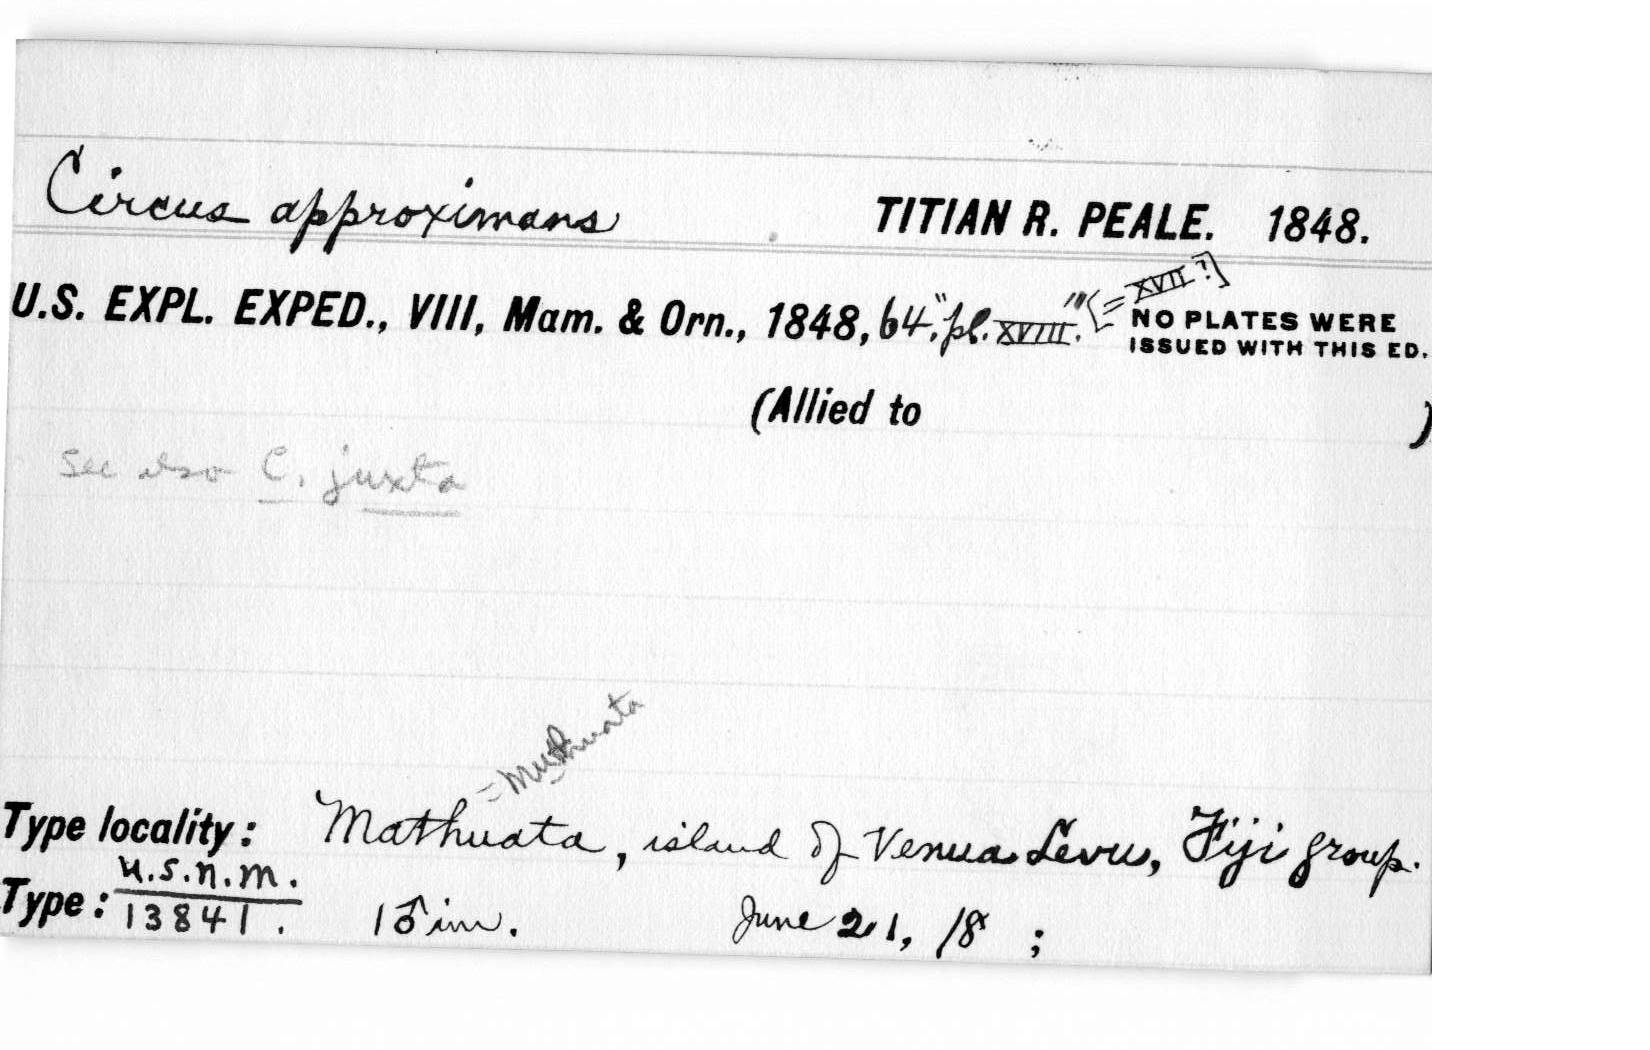 Circus approximans TITIAN R. PEALE. 1848.
U.S. EXPL. EXPED., VIII, Mam. & Orn., 1848, 64, "pl. XVIII." [= XVII ?]
NO PLATES WERE
ISSUED WITH THIS ED.
(Allied to )
See also C. juxta
= Muthuata
Type locality: Mathuata, island of Venua Levu, Fiji group.
Type: U.S.N.M. 13841. 1♂im. June 21, 18 ;